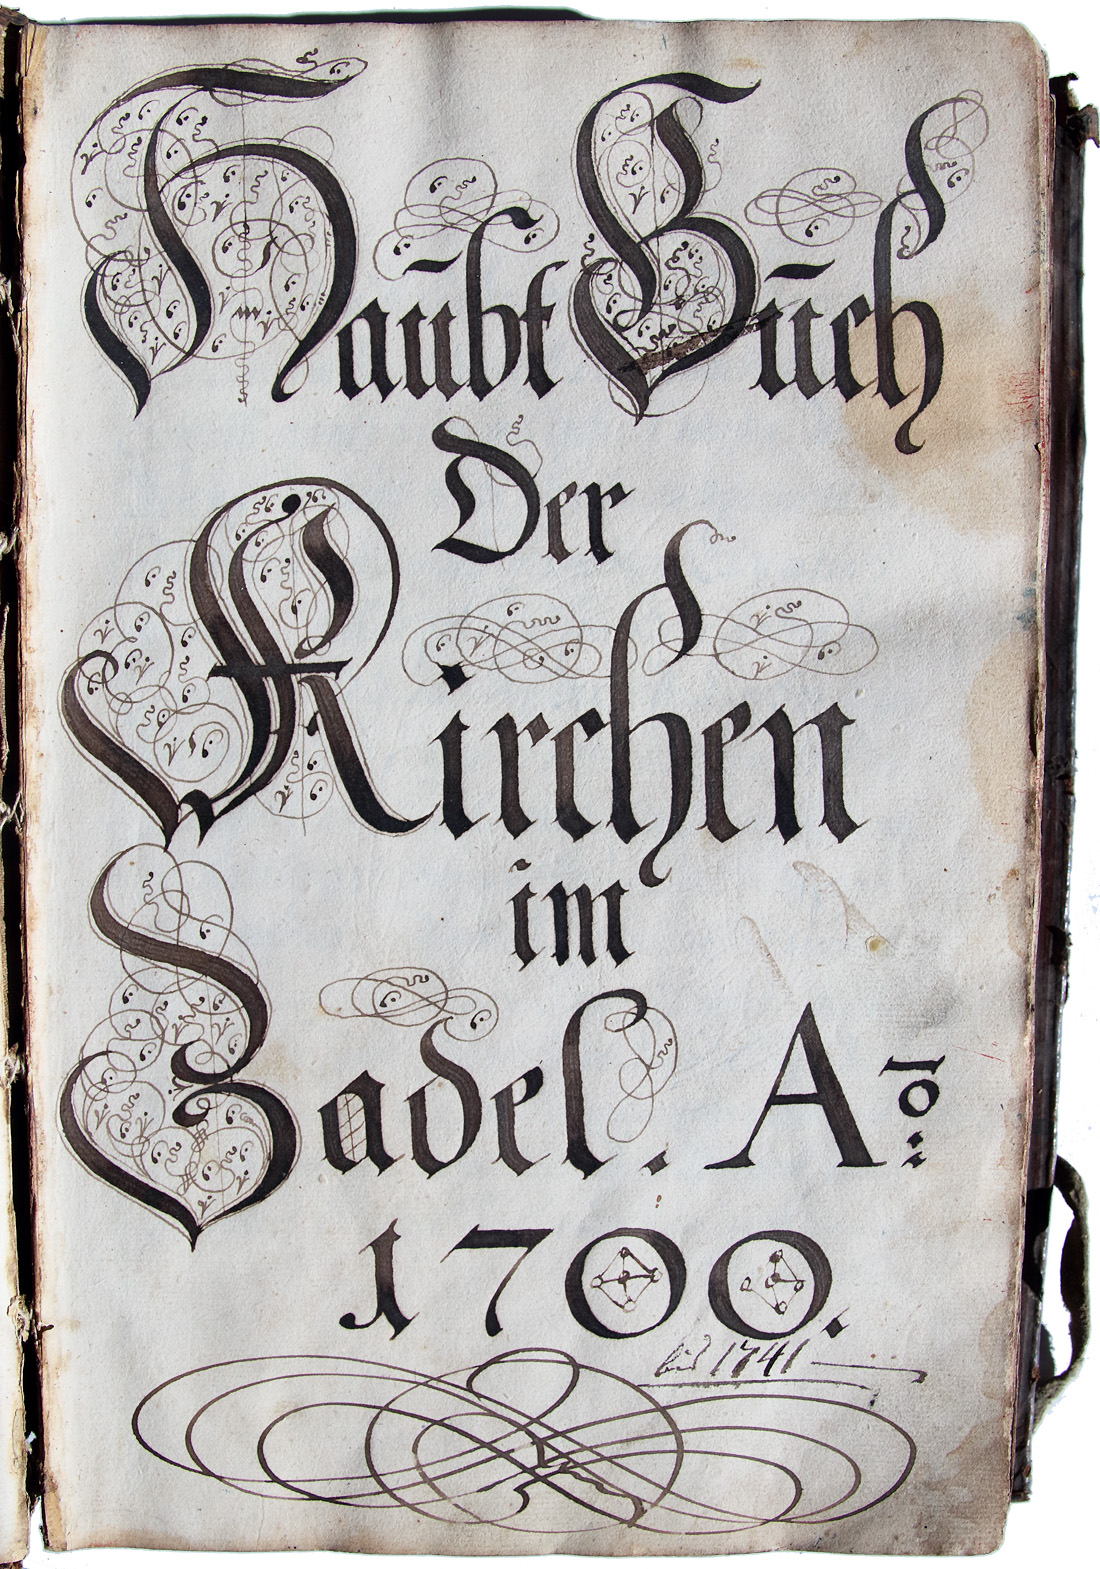 Haubt Buch
Der
Kirchen
im
Zadel. Ao:
1700.
bis 1741